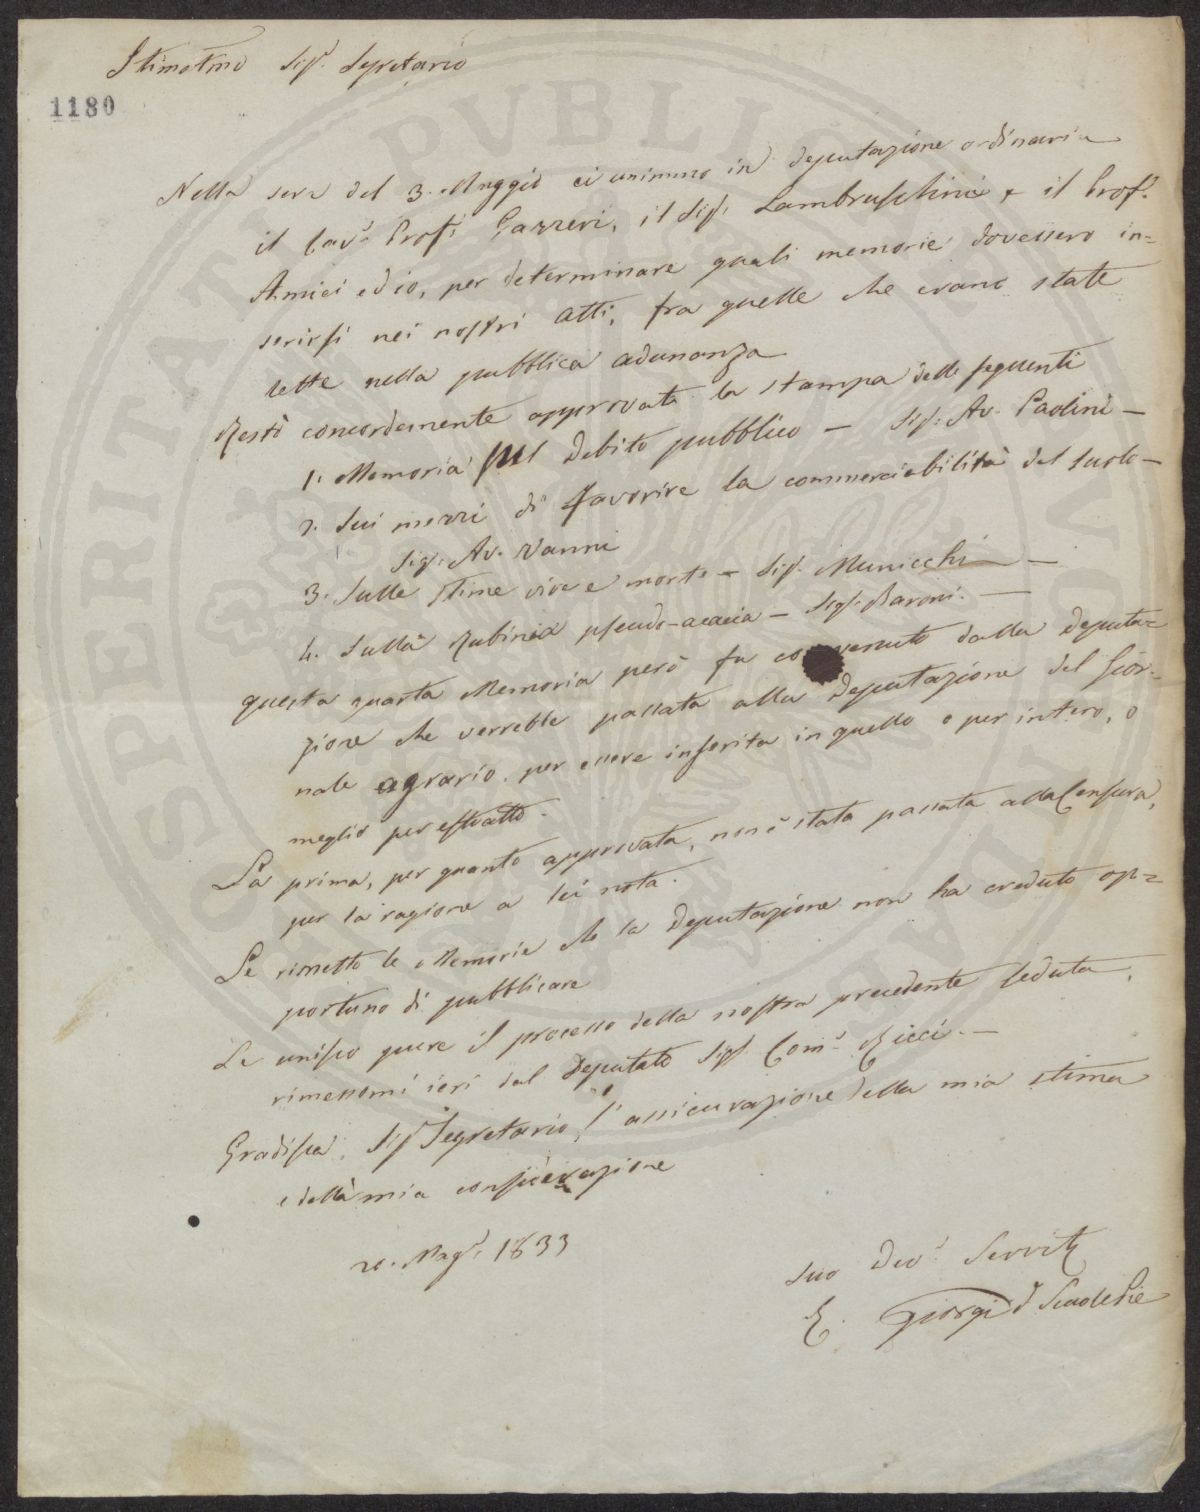 Stimatmo Sigr. Segretario
1180
Nella sera del 3. Maggio ci unimmo in deputazione ordinaria
il Cavr. Profr. Gazzeri, il Sigr. Lambruschini, e il Profr.
Amici ed io, per determinare quali memorie dovessero in=
serirsi nei nostri atti, fra quelle che erano state
lette nella pubblica adunanza
Restò concordemente approvata la stampa delle seguenti
1. Memoria sul Debito pubblico — Sigr. Av. Paolini —
2. Sui mezzi di favorire la commerciabilità del suolo —
Sigr. Av. Vanni
3. Sulle stime vive e morte — Sigr. Municchi —
4. Sulla Rubinia pseudo-acacia — Sigr. Baroni. —
questa quarta Memoria però fu convenuto dalla Deputa=
zione che verrebbe passata alla Deputazione del Gior=
nale agrario. per essere inserita in quello o per intero, o
meglio per estratto.
La prima, per quanto approvata, non è stata passata alla Censura,
per la ragione a lei nota.
Le rimetto le Memorie che la Deputazione non ha creduto op=
portuno di pubblicare
Le unisco pure il processo della nostra precedente seduta,
rimessomi ieri dal Deputato Sigr. Comr. Ricci. —
Gradisca, Sigr Segretario, l'assicurazione della mia stima
e della mia considerazione
20. Magr. 1833
Suo Devr. Servitr
E. Giorgi d Scuole Pie
SPERITATI PVBLICAE AVGENDAE